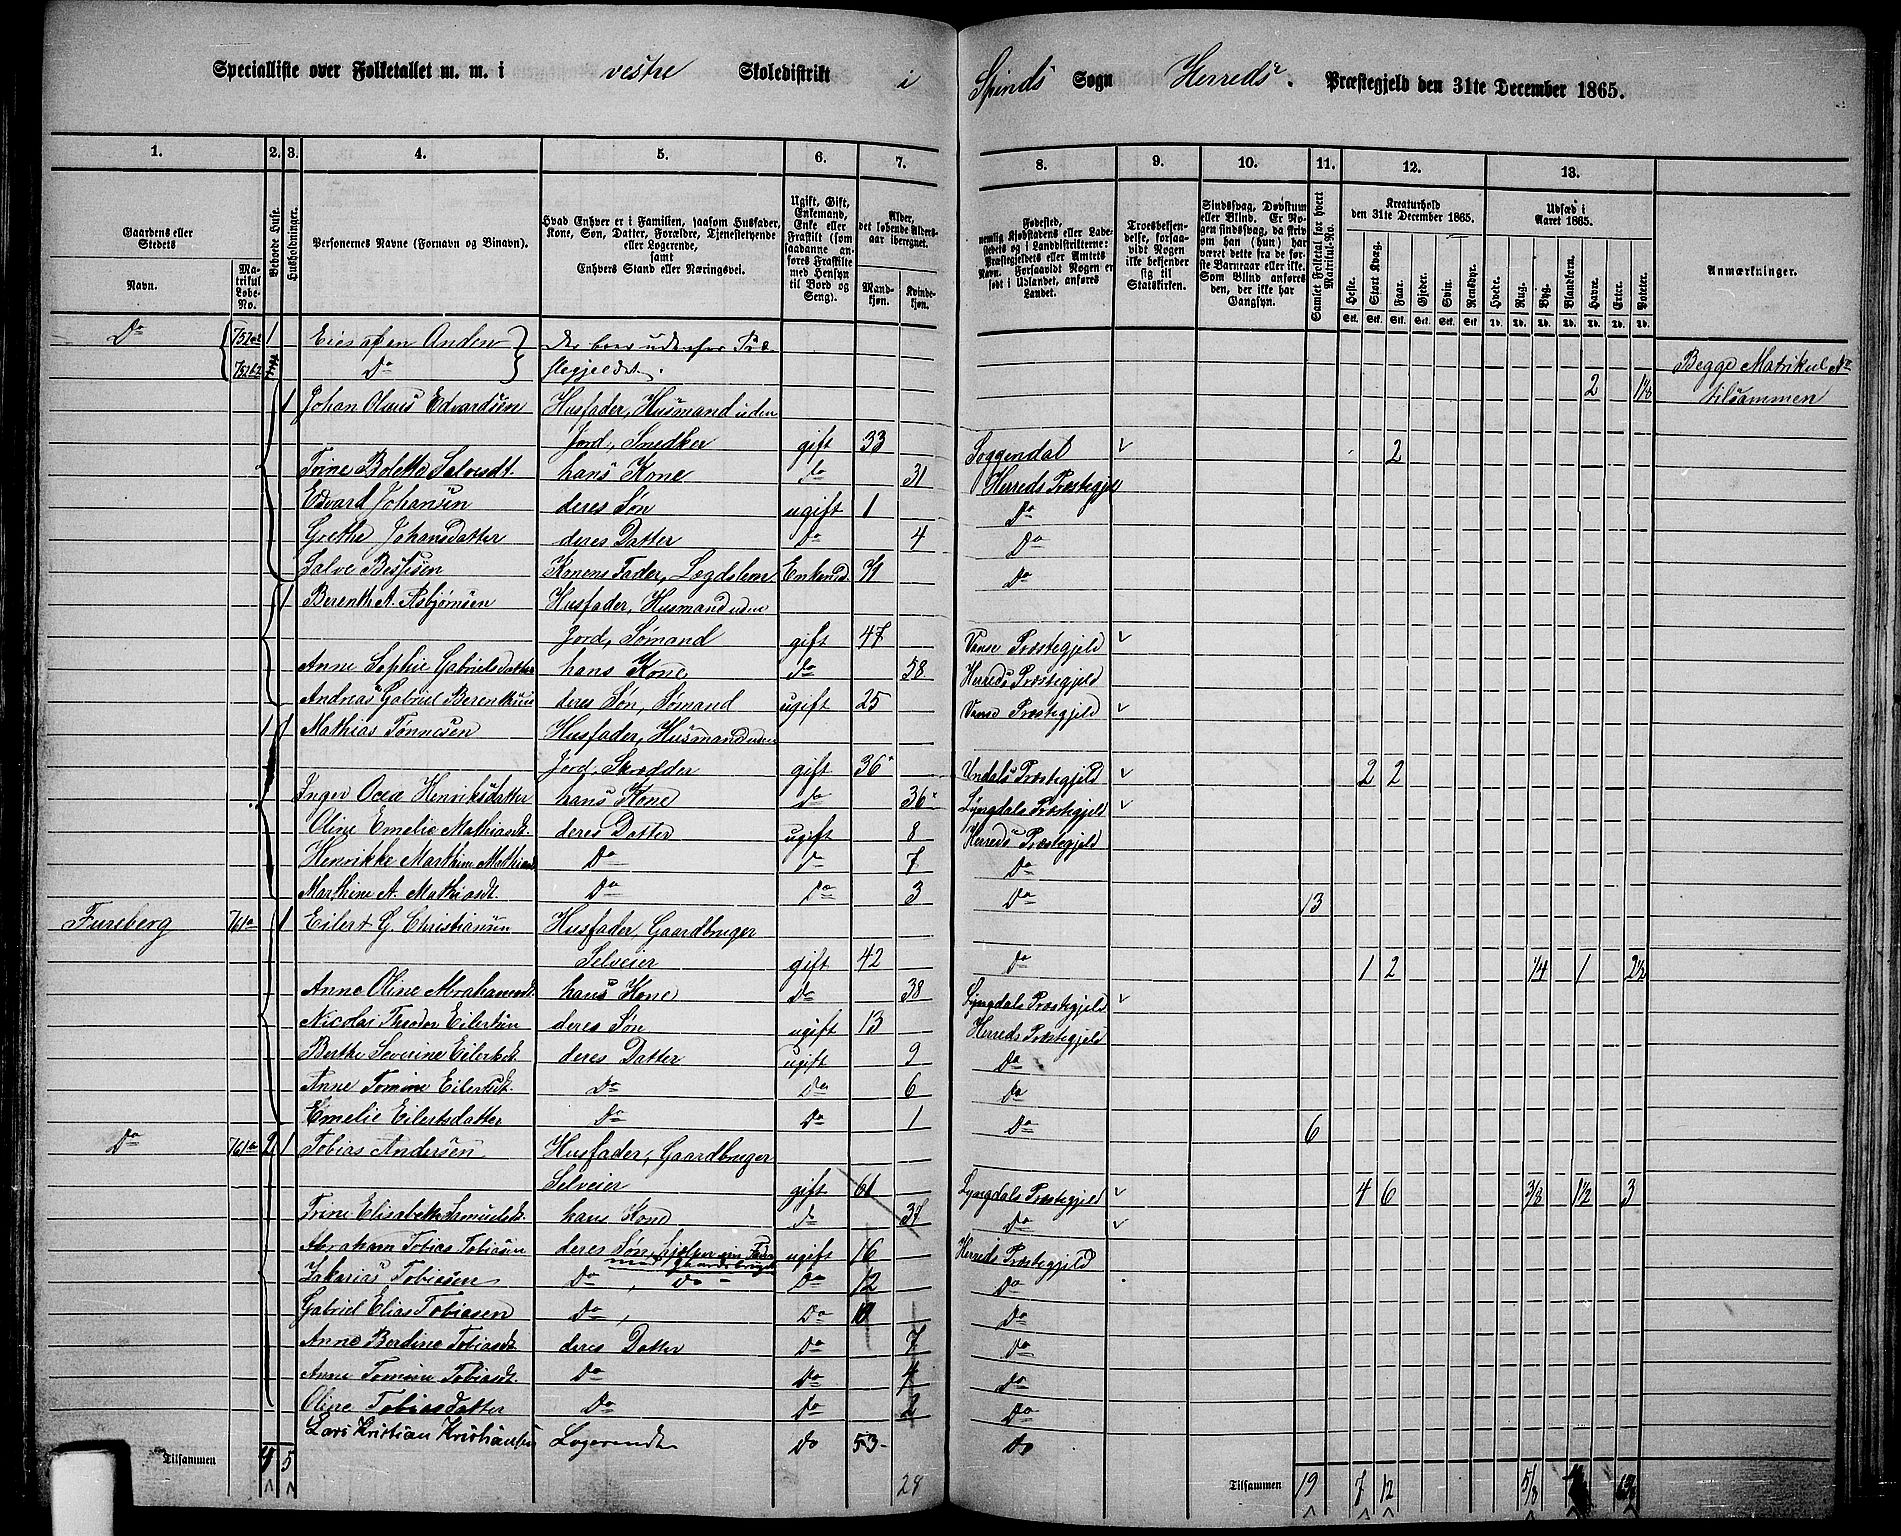 Specialliste over Folketallet m. m. i vestre Skoledistrikt i Spinds Sogn Herreds Præstegjeld den 31te December 1865.
1. 2. 3. 4. 5. 6. 7. 8. 9. 10. 11. 12. 13.
Gaardens eller Stedets
Navn.
Matrikul Løbe-No.
Beboede Huse.
Husholdninger.
Personernes Navne (Fornavn og Binavn).
Hvad Enhver er i Familien, saasom Husfader, Kone, Søn, Datter, Forældre, Tjenestetyende eller Logerende, samt Enhvers Stand eller Næringsvei.
Ugift, Gift, Enkemand, Enke eller Fraskilt (som saadanne anføres Fraskilte med Hensyn til Bord og Seng).
Alder, det løbende Aldersaar iberegnet.
Mandkjøn. Kvindekjøn.
Fødested, nemlig Kjøbstadens eller Ladestedets og i Landdistrikterne: Præstegjeldets eller Amtets Navn. Forsaavidt Nogen er født i Udlandet, anføres Landet.
Troesbekjendelse, forsaavidt Nogen ikke bekjender sig til Statskirken.
Sindssvag, Døvstum eller Blind. Er Nogen sindssvag, da skrives om han (hun) har været dette fra de første Barneaar eller ikke. Som Blind anføres den, der ikke har Gangsyn.
Samlet Folketal for hvert Matrikul-No.
Kreaturhold den 31te December 1865.
Heste. Stort Kvæg. Faar. Gjeder. Svin. Rensdyr.
Stk. Stk. Stk. Stk. Stk. Stk
Udsæd i Aaret 1865.
Hvede. Rug. Byg. Blandkorn. Havre. Erter. Poteter.
Td. Td. Td. Td. Td. Td. Td.
Anmærkninger.
Do 1 Eies af en Anden Der boer udenfor Præ-
Do stegjeldet. Begge Matrikul No
1 Johan Olaus Edvardsen Husfader, Husmand uden 2 tilsammen
Jord, Snedker gift 33 Soggendal 2
Trine Bolette Salvesdt. hans Kone do 31 Herreds Præstegjeld
Edvard Johansen deres Søn ugift 1 Do
Grethe Johansdatter deres Datter Do 4 Do
Salve Konens Fader, Lægdslem Enkemd. Do
1 Berent A. Asbjørnsen Husfader, Husmand uden
Jord, Sømand gift 47 Vanse Præstegjeld
Anne Sophie Gabrielsdatter hans Kone do 58 Herreds Præstegjeld
Andreas Gabriel Berentsen deres Søn, Sømand ugift 25 Vanse Præstegjeld
1 1 Mathias Tønnesen Husfader, Husmand uden
Jord, Skrædder gift 36 Undals Præstegjeld 2 2
Inger Ocea Henriksdatter hans Kone do 36 Lyngdals Præstegjeld
Oline Emelie Mathiasdt. deres Datter ugift 8 Herreds Præstegjeld
Henrikke Marthine Mathiasd. Do do 7 Do
Marthine A. Mathiasdt. Do Do 3 Do 13
Fureberg 761a 1 Eilert G. Christiansen Husfader, Gaardbruger
Selveier gift 42 Do 1 2 1/4 1 2½
Anne Oline Abrahamsdt. hans Kone do 38 Lyngdals Præstegjeld
Nicolai Theodor Eilertsen deres Søn ugift 13 Herreds Præstegjeld
Berthe Severine Eilertsdt. deres Datter ugift 9 Do
Anne Tomine Eilertsdt. Do Do 6 Do
Emelie Eilertsdatter Do Do 1 Do 6
Do 761a 2 1 Tobias Andersen Husfader, Gaardbruger
Selveier gift 61 Lyngdals Præstegjeld 4 6 3/8 1½ 3
Trine Elisabeth Samuelsdt. hans Kone do 37 Do
Abraham Tobias Tobiasen deres Søn, hjelper sin Fader med Gaardsbruget ugift 16 Herreds Præstegjeld
Zakarias Tobiasen Do, Do Do 12 Do
Gabriel Elias Tobiasen Do, Do Do
Anne Berdine Tobiasdt. deres Datter Do 7 Do
Anne Tomine Tobiasdt. Do Do Do
Oline Tobiasdatter Do Do 2 Do
Lars Kristian Kristiansen Logerende Do 53 Do
Tilsammen 4 5 28 Tilsammen 19 7 12 5/8